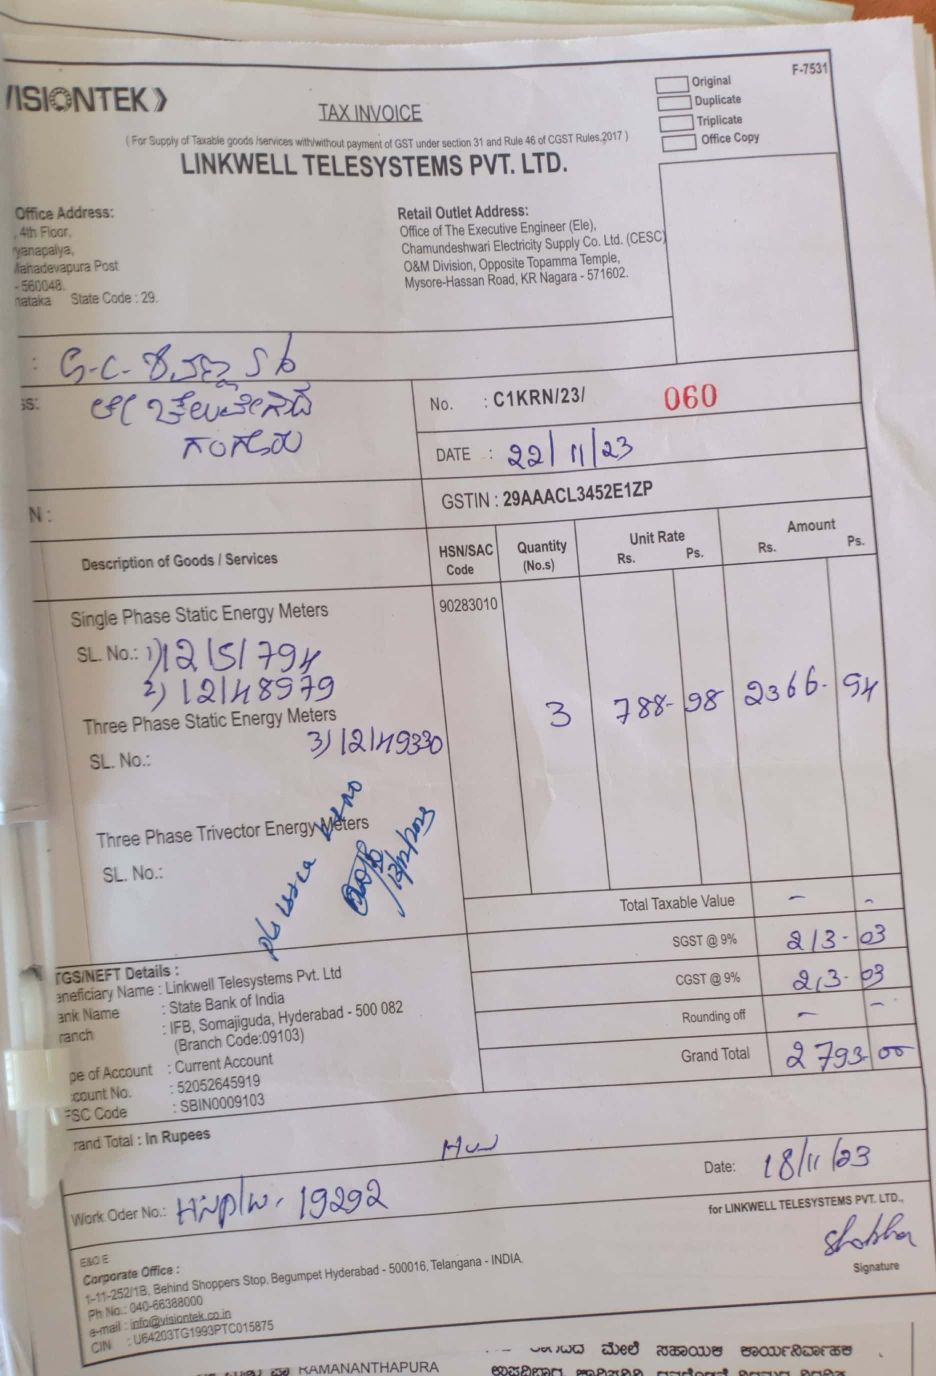 VISIONTEK
F-7531
Original
Duplicate
Triplicate
Office Copy
TAX INVOICE
( For Supply of Taxable goods /services with/without payment of GST under section 31 and Rule 46 of CGST Rules,2017 )
LINKWELL TELESYSTEMS PVT. LTD.
Office Address:
4th Floor,
Post
- 560048.
State Code : 29.
Retail Outlet Address:
Office of The Executive Engineer (Ele),
Chamundeshwari Electricity Supply Co. Ltd. (CESC)
O&M Division, Opposite Topamma Temple,
Mysore-Hassan Road, KR Nagara - 571602.
No. : C1KRN/23/ 060
DATE : 22/11/23
GSTIN : 29AAACL3452E1ZP
Description of Goods / Services
HSN/SAC Code
Quantity (No.s)
Unit Rate Rs. Ps.
Amount Rs. Ps.
Single Phase Static Energy Meters
90283010
SL. No.: 1) 12151794
2) 12148979
3 788-98 2366-94
Three Phase Static Energy Meters
3) 12149330
SL. No.:
Three Phase Trivector Energy Meters
SL. No.:
13/12/2023
Total Taxable Value - -
SGST @ 9% 213-03
CGST @ 9% 213-03
Rounding off - -
Grand Total 2793-00
TGS/NEFT Details :
eneficiary Name : Linkwell Telesystems Pvt. Ltd
ank Name : State Bank of India
ranch : IFB, Somajiguda, Hyderabad - 500 082
(Branch Code:09103)
pe of Account : Current Account
count No. : 52052645919
SC Code : SBIN0009103
rand Total : In Rupees
Date: 18/11/23
Work Oder No.: 19292
for LINKWELL TELESYSTEMS PVT. LTD.,
Shobha
Signature
E&O E
Corporate Office :
1-11-252/1B, Behind Shoppers Stop, Begumpet Hyderabad - 500016, Telangana - INDIA.
Ph No.: 040-66388000
e-mail : info@visiontek.co.in
CIN : U64203TG1993PTC015875
ಮೇಲೆ ಸಹಾಯಕ ಕಾರ್ಯನಿರ್ವಾಹಕ
RAMANANTHAPURA